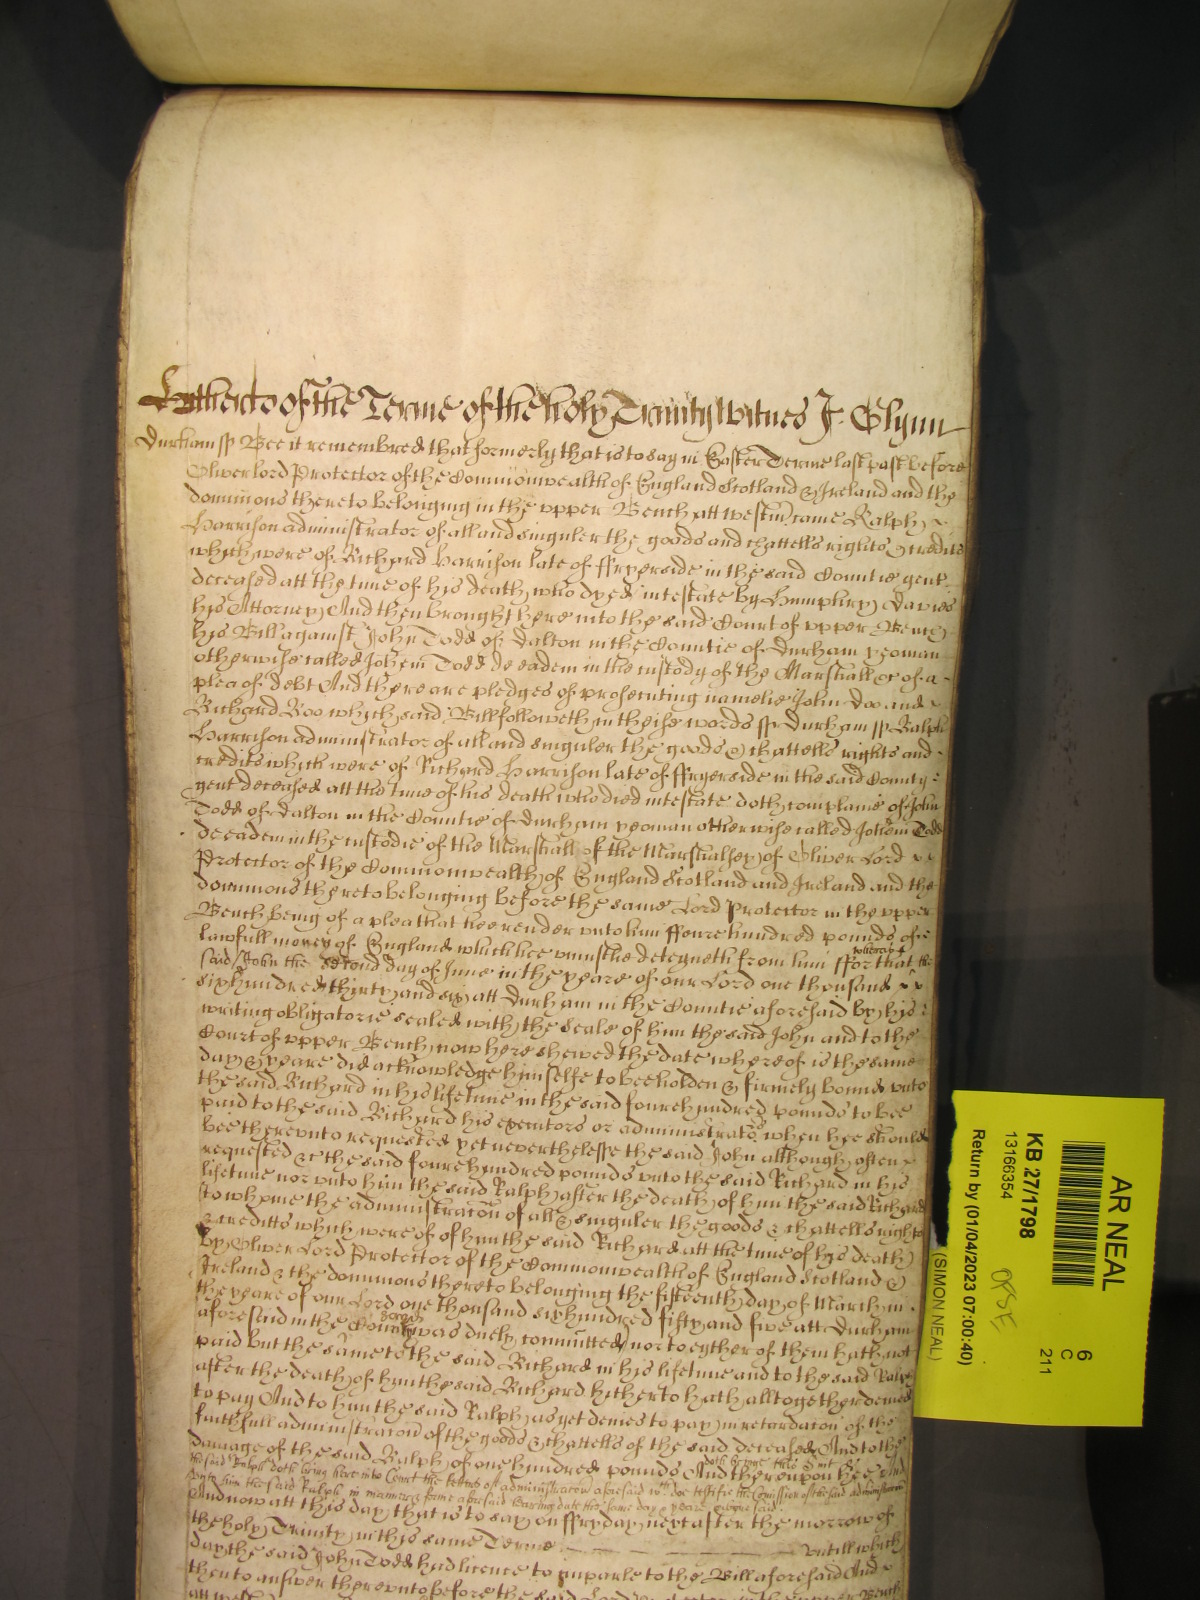 Hitherto of the Terme of the holy Trinity Witnes J. Glynn
Durham ss Bee it remembred that formerly that is to say in Easter Terme last past before
Oliver lord Protector of the Commonwealth of England Scotland & Ireland and the
dominions thereto belonging in the upper Bench att Westm. came Ralph
Harrison administrator of all and singuler the goods and chattells rights & credits
which were of Richard Harrison late of ffryerside in the said Countie gent
deceased att the time of his death who dyed intestate by Humphry Davies
his Attorney And then brought here into the said Court of upper Bench
his Bill against John Todd of Dalton in the Countie of Durham yeoman
otherwise called Johem Todd de eadem in the custody of the Marshall &c of a
plea of debt And there are pledges of prosecuting namelie John Doo and
Richard Roo which said Bill followeth in theise words ss Durham ss Ralph
Harrison administrator of all and singuler the goods & chattells rights and
credits which were of Richard Harrison late of ffryerside in the said County
gent deceased att the time of his death who died intestate doth complaine of John
Todd of Dalton in the Countie of Durham yeoman otherwise called Johem Todd
de eadem in the custodie of the Marshall of the Marshalsey of Oliver Lord
Protector of the Commonwealth of England Scotland and Ireland and the
dominions thereto belonging before the same Lord Protector in the upper
Bench being of a plea that hee render unto him ffoure hundred pounds of
lawfull money of England which hee uniustlie deteyneth from him ffor that
said John the second day of June in the yeare of our Lord one thousand
sixhundred thirty and six att Durham in the Countie aforesaid by his
writing obligatorie sealed with the seale of him the said John and to the
Court of upper Bench now here shewed the date whereof is the same
day & yeare did acknowledge himselfe to bee holden & firmely bound unto
the said Richard in his lifetime in the said foure hundred pounds to bee
paid to the said Richard his executors or administrators when hee should
bee thereunto requested yet neverthelesse the said John although often
requested &c the said foure hundred pounds unto the said Richard in his
lifetime nor unto him the said Ralph after the death of him the said Richard
to whome the administracon of all & singuler the goods & chattells rights
& creditts which were of of him the said Richard att the time of his death
by Oliver Lord Protector of the Commonwealth of England Scotland &
Ireland & the dominions thereto belonging the fifteenth day of March in
the yeare of our Lord one thousand sixhundred fifty and five att Durham
aforesaid in the County was duely committed nor to eyther of them hath not
paid but the same to the said Richard in his lifetime and to the said Ralph
after the death of him the said Richard hitherto hath alltogether denied
to pay And to him the said Ralph as yet denies to pay in retardacon of the
faithfull administracon of the goods & chattells of the said deceased And to the
damage of the said Ralph of one hundred pounds And thereupon hee
the said Ralph doth bring here into Court the letters of administracon aforesaid wch doe testifie the Comission of the said administracon
unto him the said Ralph in manner & forme aforesaid bearing date the same day & yeare above said
And now att this day that is to say on ffryday next after the morrow of
the holy Trinity in this same Terme untill which
day the said John Todd had licence to imparle to the Bill aforesaid And
then to answer thereunto before the said Lord
att
AR NEAL
KB 27/1798
13166354
Return by (01/04/2023 07:00:40)
(SIMON NEAL)
6
C
211